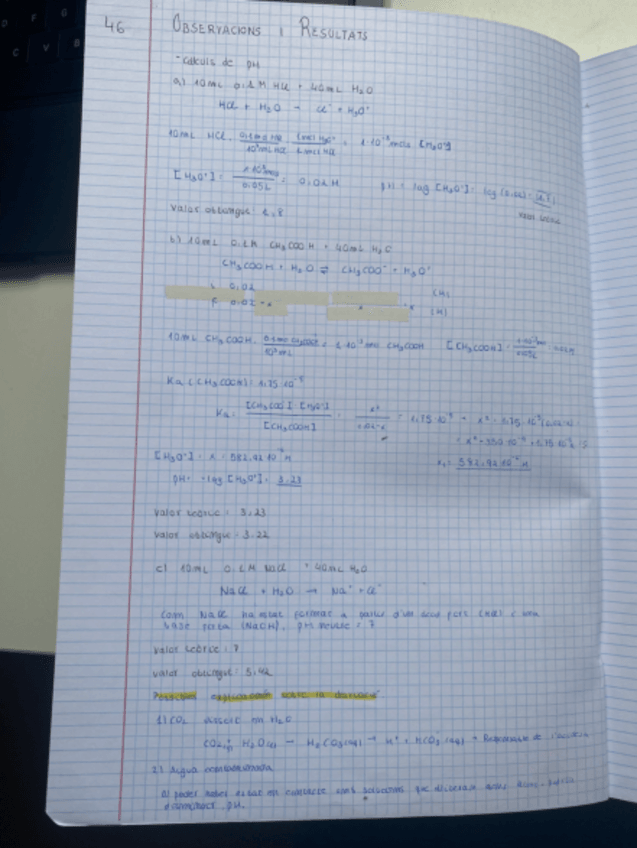 46
OBSERVACIONS I RESULTATS
- Càlculs de pH
a) 10mL 0.1M HCl + 40mL H₂O
HCl + H₂O → Cl⁻ + H₃O⁺
10mL HCl · 0.1mol HCl / 10³mL HCl · 1mol H₃O⁺ / 1mol HCl = 1·10⁻³ mols [H₃O⁺]
[H₃O⁺] = 1·10⁻³mol / 0.05L = 0.02M pH = log [H₃O⁺] = log (0.02) =
Valor obtingut: 1.8
b) 10mL 0.1M CH₃COOH + 40mL H₂O
CH₃COOH + H₂O ⇌ CH₃COO⁻ + H₃O⁺
i. 0.02 (M)
F. 0.02 - x x x (M)
10mL CH₃COOH · 0.1mol CH₃COOH / 10³mL = 1·10⁻³ mol CH₃COOH [CH₃COOH] = 1·10⁻³mol / 0.05L = 0.02M
Ka (CH₃COOH) = 1.75·10⁻⁵
Ka = [CH₃COO⁻] [H₃O⁺] / [CH₃COOH] = x² / 0.02-x = 1.75·10⁻⁵ → x² = 1.75·10⁻⁵(0.02-x)
[H₃O⁺] = x = 582.92·10⁻⁶ M x₁ = 582.92·10⁻⁶ M
pH = -log [H₃O⁺] = 3.23
Valor teòric: 3.23
Valor obtingut: 3.22
c) 10mL 0.1M NaCl + 40mL H₂O
NaCl + H₂O → Na⁺ + Cl⁻
Com NaCl ha estat format a partir d'un àcid fort (HCl) i una
base forta (NaOH), pH neutre = 7
Valor teòric: 7
Valor obtingut: 5.42
Possibles explicacions sobre la desviació
1) CO₂ dissolt en H₂O
CO₂ H₂O(l) → H₂CO₃(aq) → H⁺ + HCO₃⁻(aq) → Responsable de l'acidesa
2) Aigua contaminada
al poder haver estat en contacte amb solucions que
disminueix pH.